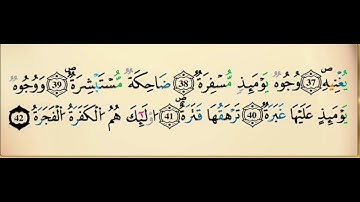 يُغْنِيهِ (37) وُجُوهٌ يَوْمَئِذٍ مُّسْفِرَةٌ (38) ضَاحِكَةٌ مُّسْتَبْشِرَةٌ (39) وَوُجُوهٌ
يَوْمَئِذٍ عَلَيْهَا غَبَرَةٌ (40) تَرْهَقُهَا قَتَرَةٌ (41) أُولَٰئِكَ هُمُ الْكَفَرَةُ الْفَجَرَةُ (42)